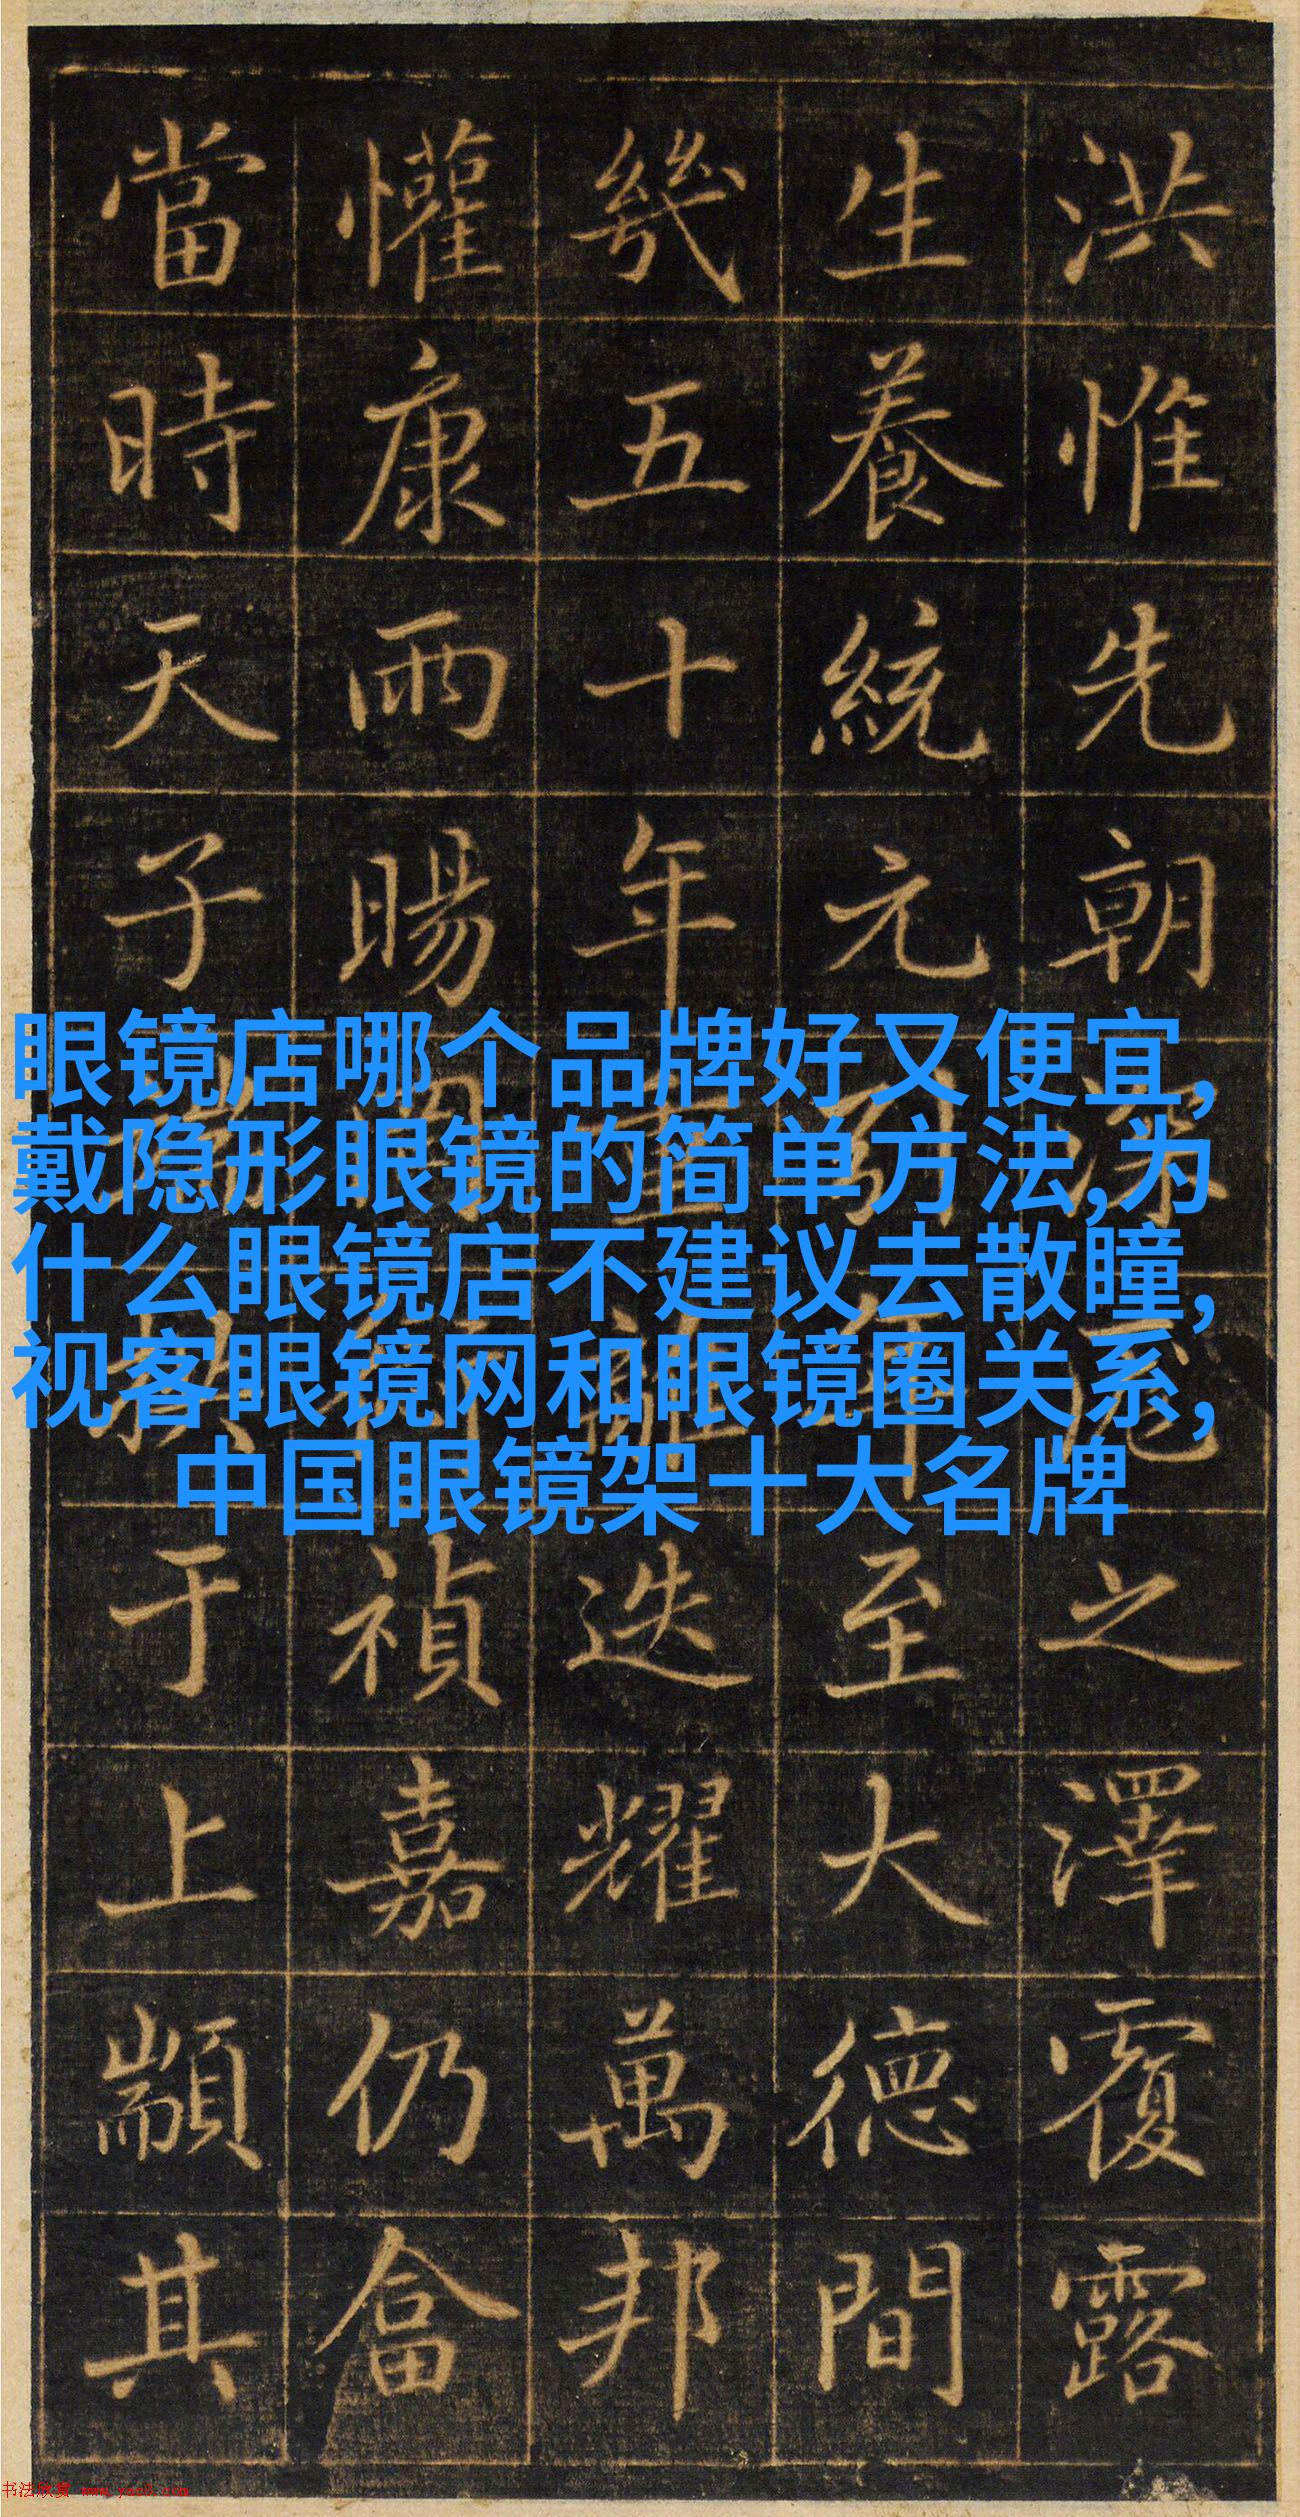 洪惟先朝之澤覆露
生養統元至大德間
幾五十年迭耀萬邦
懽康雨暘禎嘉仍畣
當時天子于上顒其
眼镜店哪个品牌好又便宜,
戴隐形眼镜的简单方法,为
什么眼镜店不建议去散瞳,
视客眼镜网和眼镜圈关系,
中国眼镜架十大名牌
书法欣赏 www.yac8.com